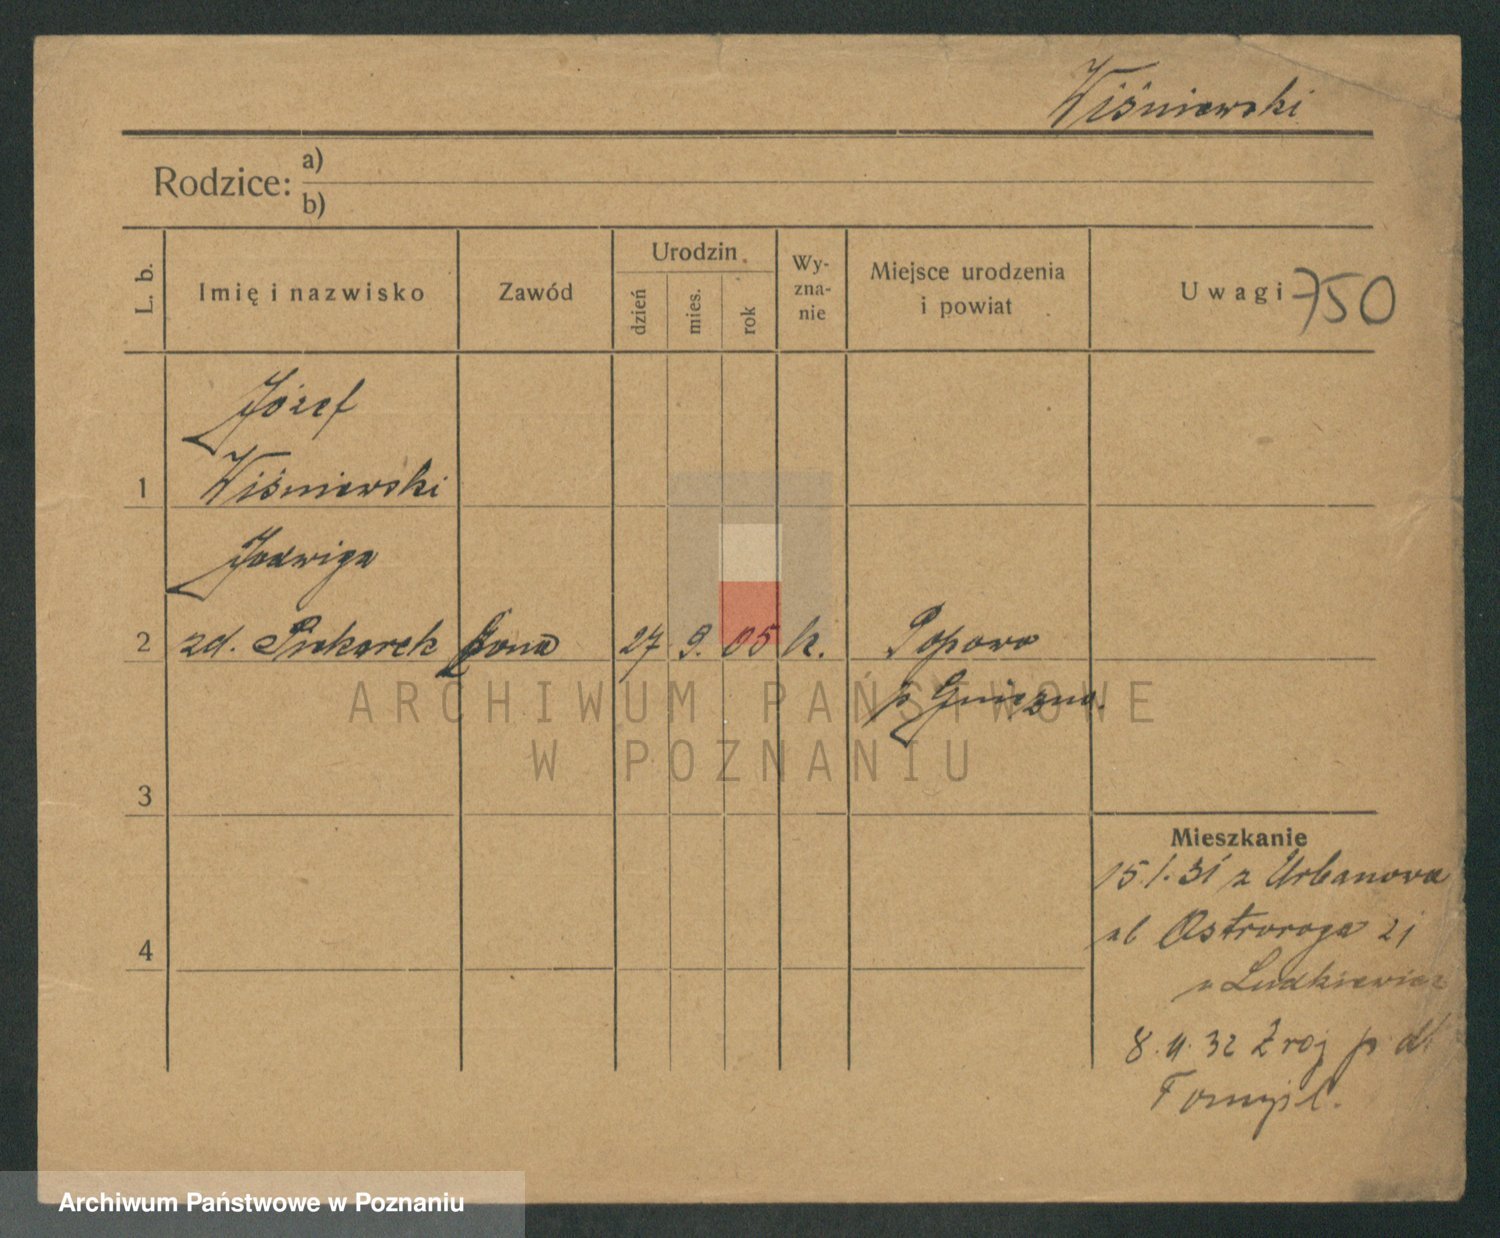 Wiśniewski
Rodzice:
a)
b)
L. b.
Imię i nazwisko
Zawód
Urodzin
dzień
mies.
rok
Wy-
zna-
nie
Miejsce urodzenia
i powiat
Uwagi
750
Józef
1
Wiśniewski
Jadwiga
2
zd. Piekarek żona 27 9. 05 k. Popowo
p. Gniezno.
ARCHIWUM PAŃSTWOWE
W POZNANIU
3
Mieszkanie
15.1.31 z Urbanowa
ul Ostroroga 21
u Ludkiewicz
4
8.4.32 p
Archiwum Państwowe w Poznaniu